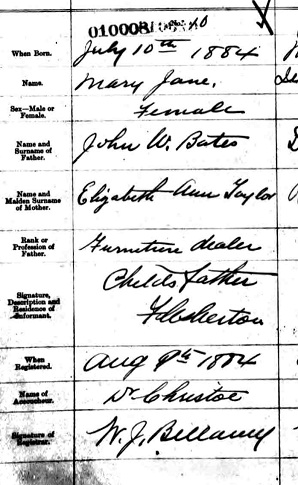 010008
No. 10
When Born.
July 10th 1884
Name.
Mary Jane.
Sex—Male or
Female.
Female
Name and
Surname of
Father.
John W. Bates
Name and
Maiden Surname
of Mother.
Elizabeth Ann Taylor
Rank or
Profession of
Father.
Furniture dealer
Signature,
Description and
Residence of
Informant.
Childs father
When
Registered.
Aug 9th 1884
Name of
Accoucheur.
Dr Christoe
Signature of
Registrar.
W. J. Bellamy